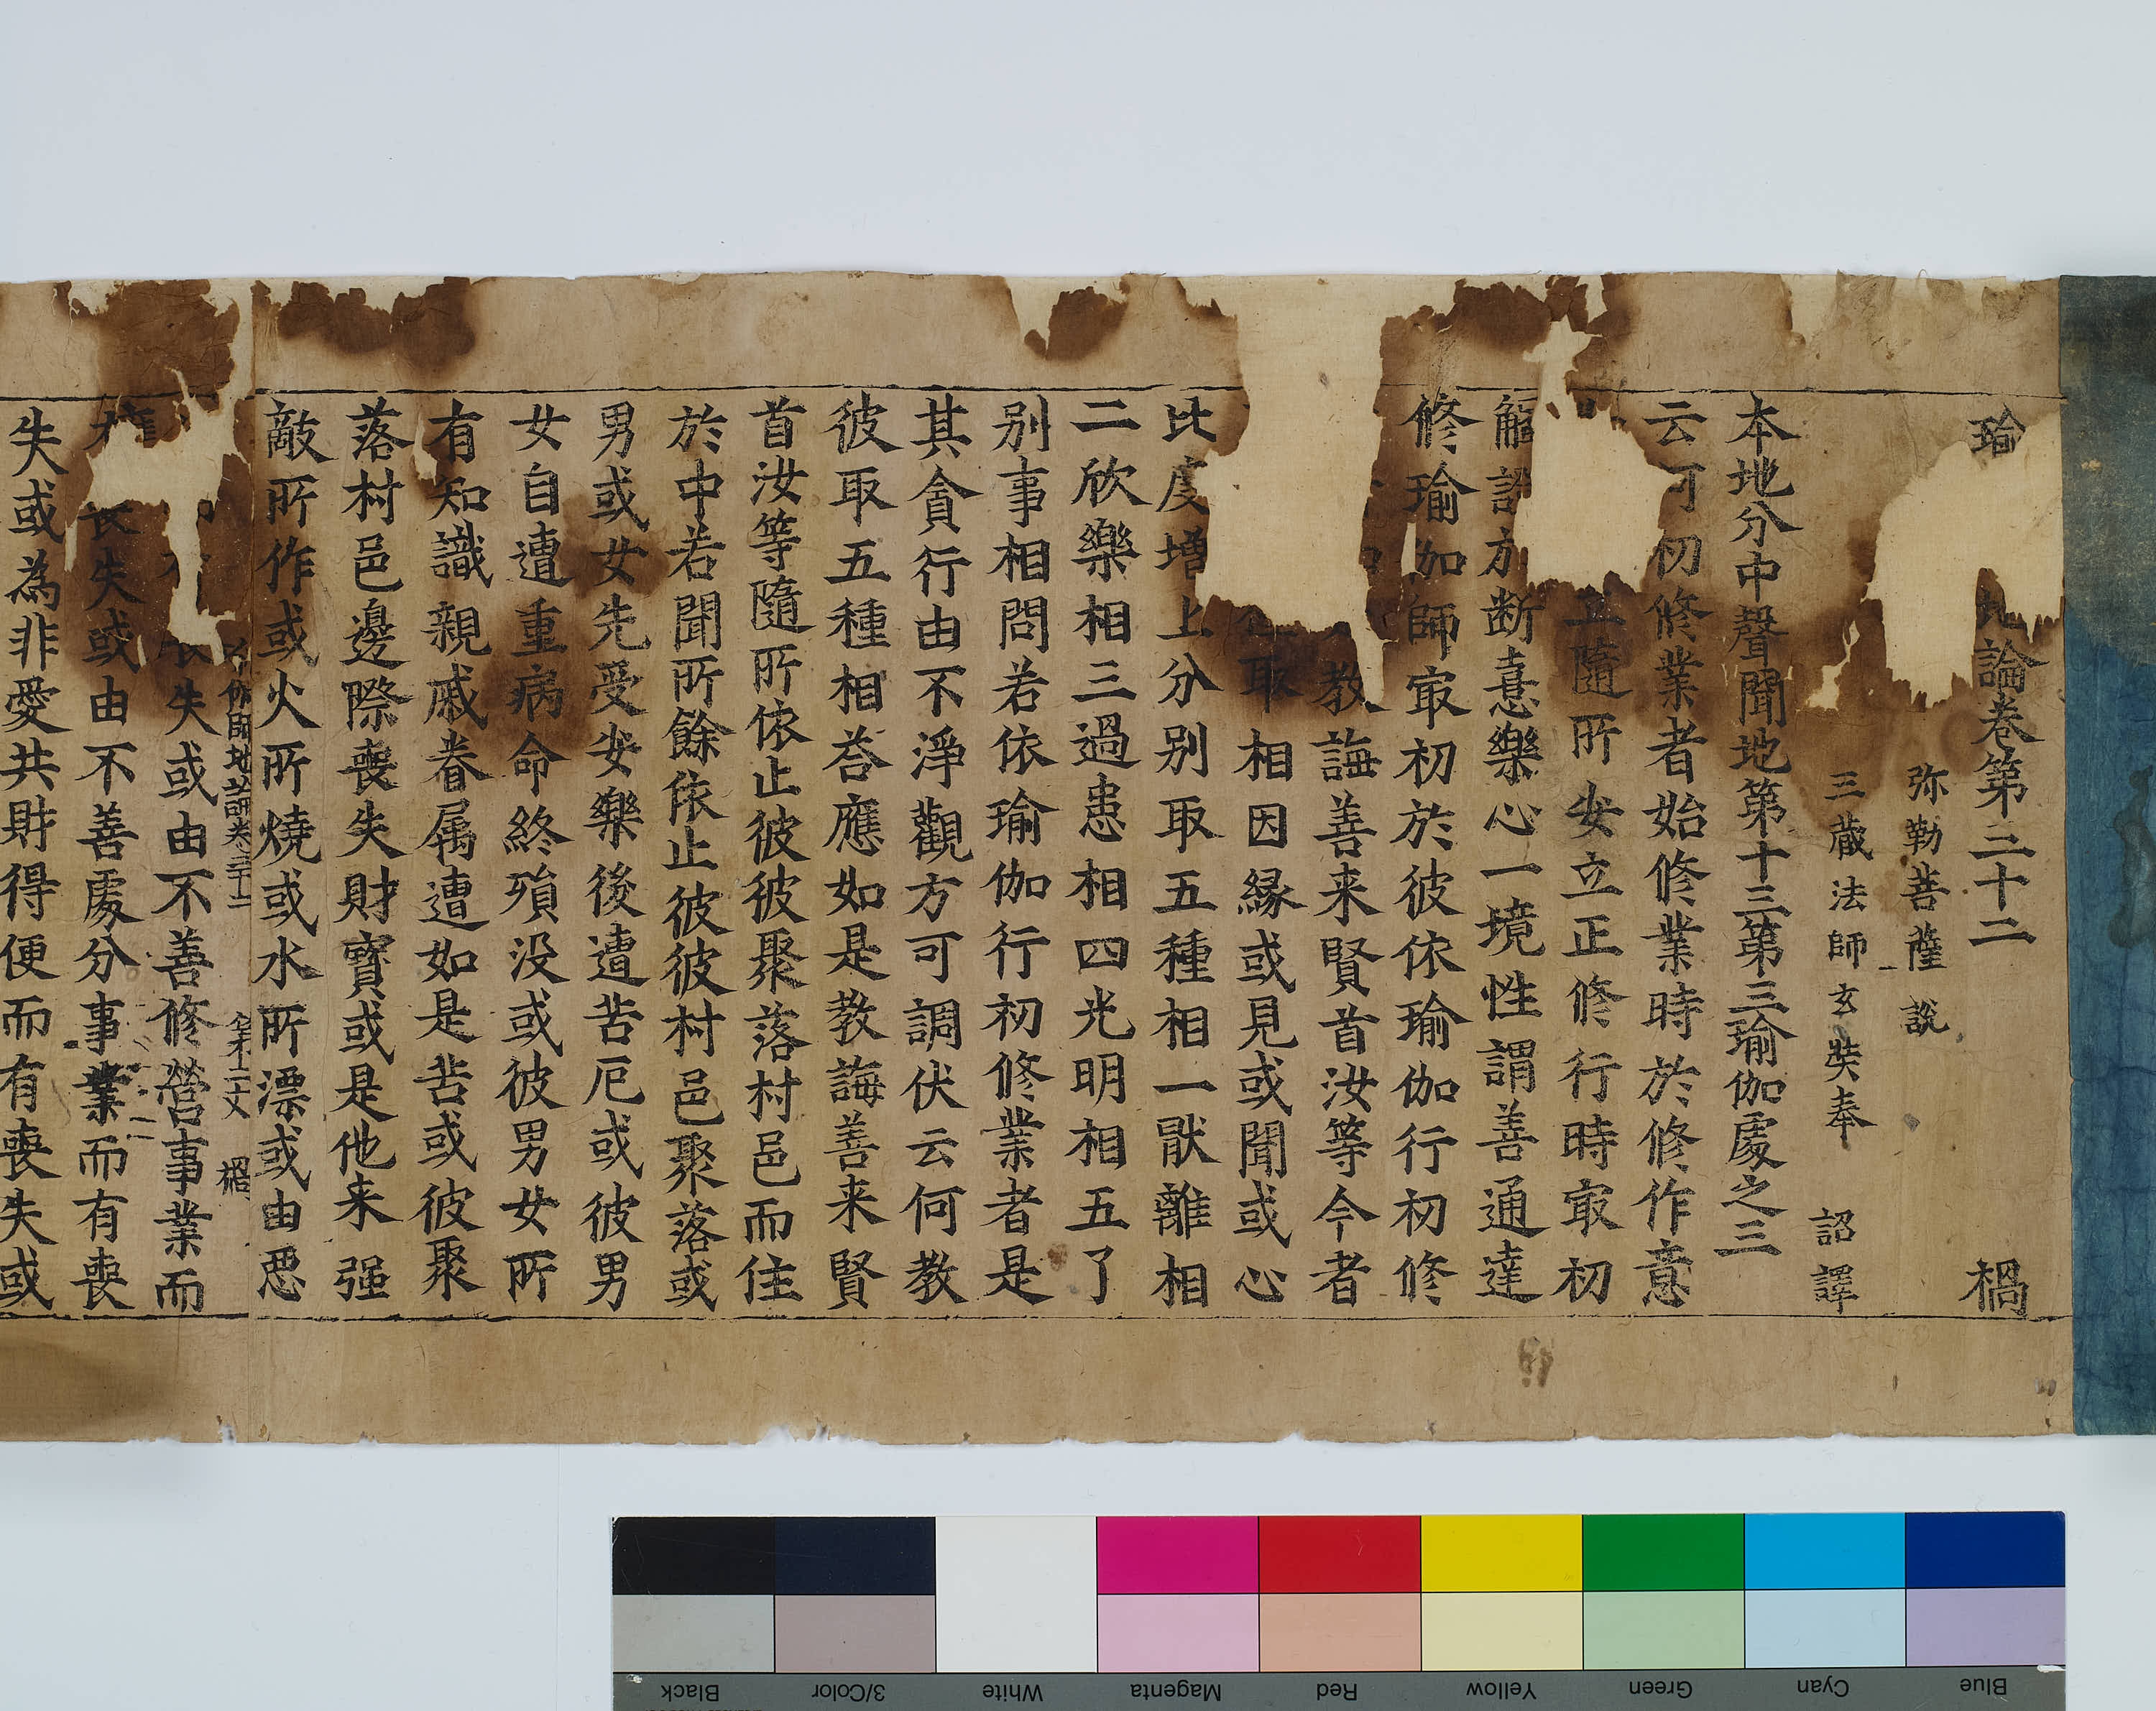 瑜 地論卷第三十二 禍
弥勒菩薩 說
三藏法師玄奘奉 詔譯
本地分中聲聞地第十三第三瑜伽處之三
云何初修業者始修業時於修作意
隨所安立正修行時㝡初
觸證於斷憙樂心一境性謂善通達
修瑜伽師㝡初於彼依瑜伽行初修
教誨善来賢首汝等今者
取相因縁或見或聞或心
比度增上分别取五種相一猒離相
二欣樂相三過患相四光明相五了
别事相問若依瑜伽行初修業者是
其貪行由不淨觀方可調伏云何教
彼取五種相荅應如是教誨善来賢
首汝等隨所依止彼彼聚落村邑而住
於中若聞所餘依止彼彼村邑聚落或
男或女先受安樂後遭苦厄或彼男
女自遭重病命終殞没或彼男女所
有知識親戚眷属遭如是苦或彼聚
落村邑邊際喪失財寶或是他来强
敵所作或火所燒或水所漂或由悪
伽師地論卷三十二 第二丈 禍
失或由不善修營事業而
喪失或由不善處分事業而有喪
失或為非愛共財得便而有喪失或
Black
3/Color
White
Magenta
Red
Yellow
Green
Cyan
Blue